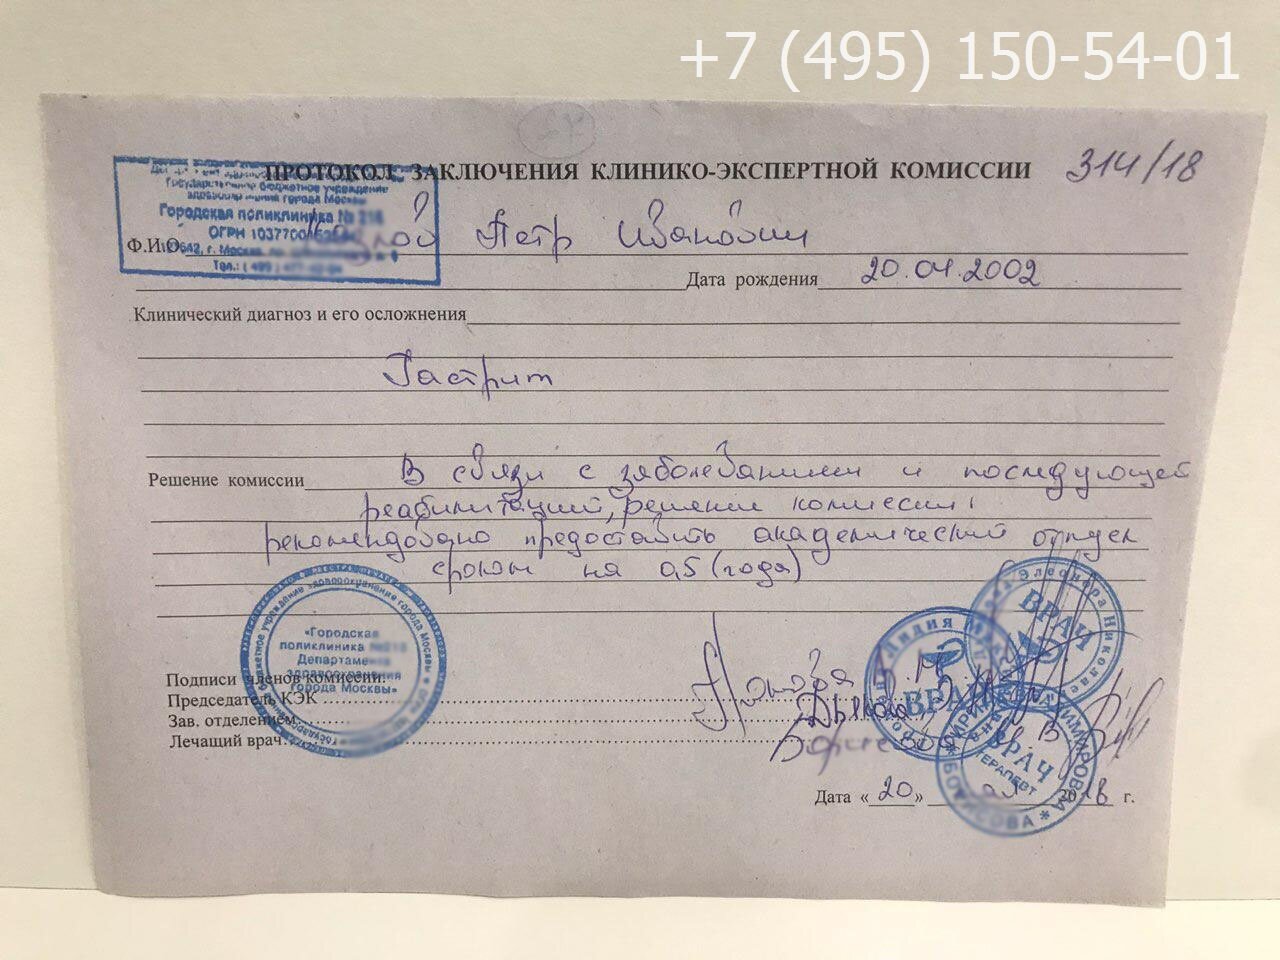 +7 (495) 150-54-01
ПРОТОКОЛ ЗАКЛЮЧЕНИЯ КЛИНИКО-ЭКСПЕРТНОЙ КОМИССИИ 314/18
Государственное бюджетное учреждение
здравоохранения города Москвы
Городская поликлиника №
ОГРН 1037700
Тел.: ( 495 )
Ф.И.О. Петр Иванович
Дата рождения 20.04.2002
Клинический диагноз и его осложнения
Гастрит
Решение комиссии В связи с заболеванием и последующей
реабилитацией, решение комиссии:
рекомендовано предоставить академический отпуск
сроком на 0,5 (года)
«Городская
поликлиника
Департамента
здравоохранения
города Москвы»
Подписи членов комиссии:
Председатель КЭК
Зав. отделением
Лечащий врач
ВРАЧ
Элеонора
ВРАЧ
Лидия
ВРАЧ
ТЕРАПЕВТ
БОРИСОВА
Дата «20» 2018 г.